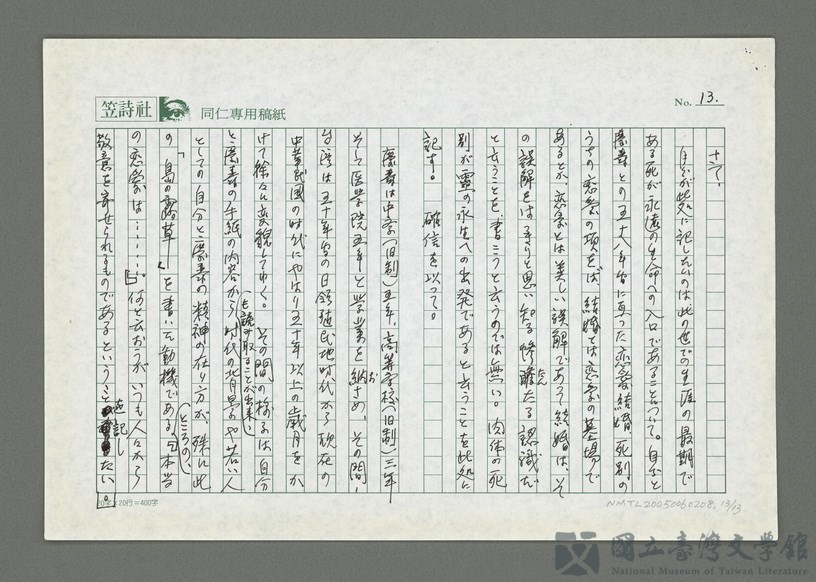 笠詩社
同仁專用稿紙
No. 13.
十七、
自分が此処に記したいのは此の世での生涯の最期で
ある死が永遠の生命への入口であることについて。自分と
との五十八年当に亘った恋愛、結婚、死別の
うちの恋愛の項をば、結婚とは恋愛の墓場で
あるとか、恋愛とは美しい誤解であって結婚は、そ
の誤解をはっきりと思い知る惨憺たん たる認識だ
と云うことを、書こうと云うのでは無い。肉体の死
別が霊の永生への出発であると云うことを此処に
記す。 確信を以って。
は中学(旧制)五年、高等学校(旧制)三年
そして医学院五年と学業を納おさめ、その間、
台湾は五十年当の日領植民地時代から現在の
中華民国の時代にやはり五十年以上の歳月をか
けて徐々に変貌してゆく。その間の様子は自分
との手紙の内容から時代の背景や若い人
も読み取ることが出来、
としての自分との精神の在り方が、殊に此
の「鳥の露草」を書いた動機である ところの、 本当
の恋愛は……。何と云おうが、いつも人々から
敬意を寄せられるものであるということ を記し たい。
20字×20行=400字
NMTL20050060208, 13/13
國立臺灣文學館
National Museum of Taiwan Literature